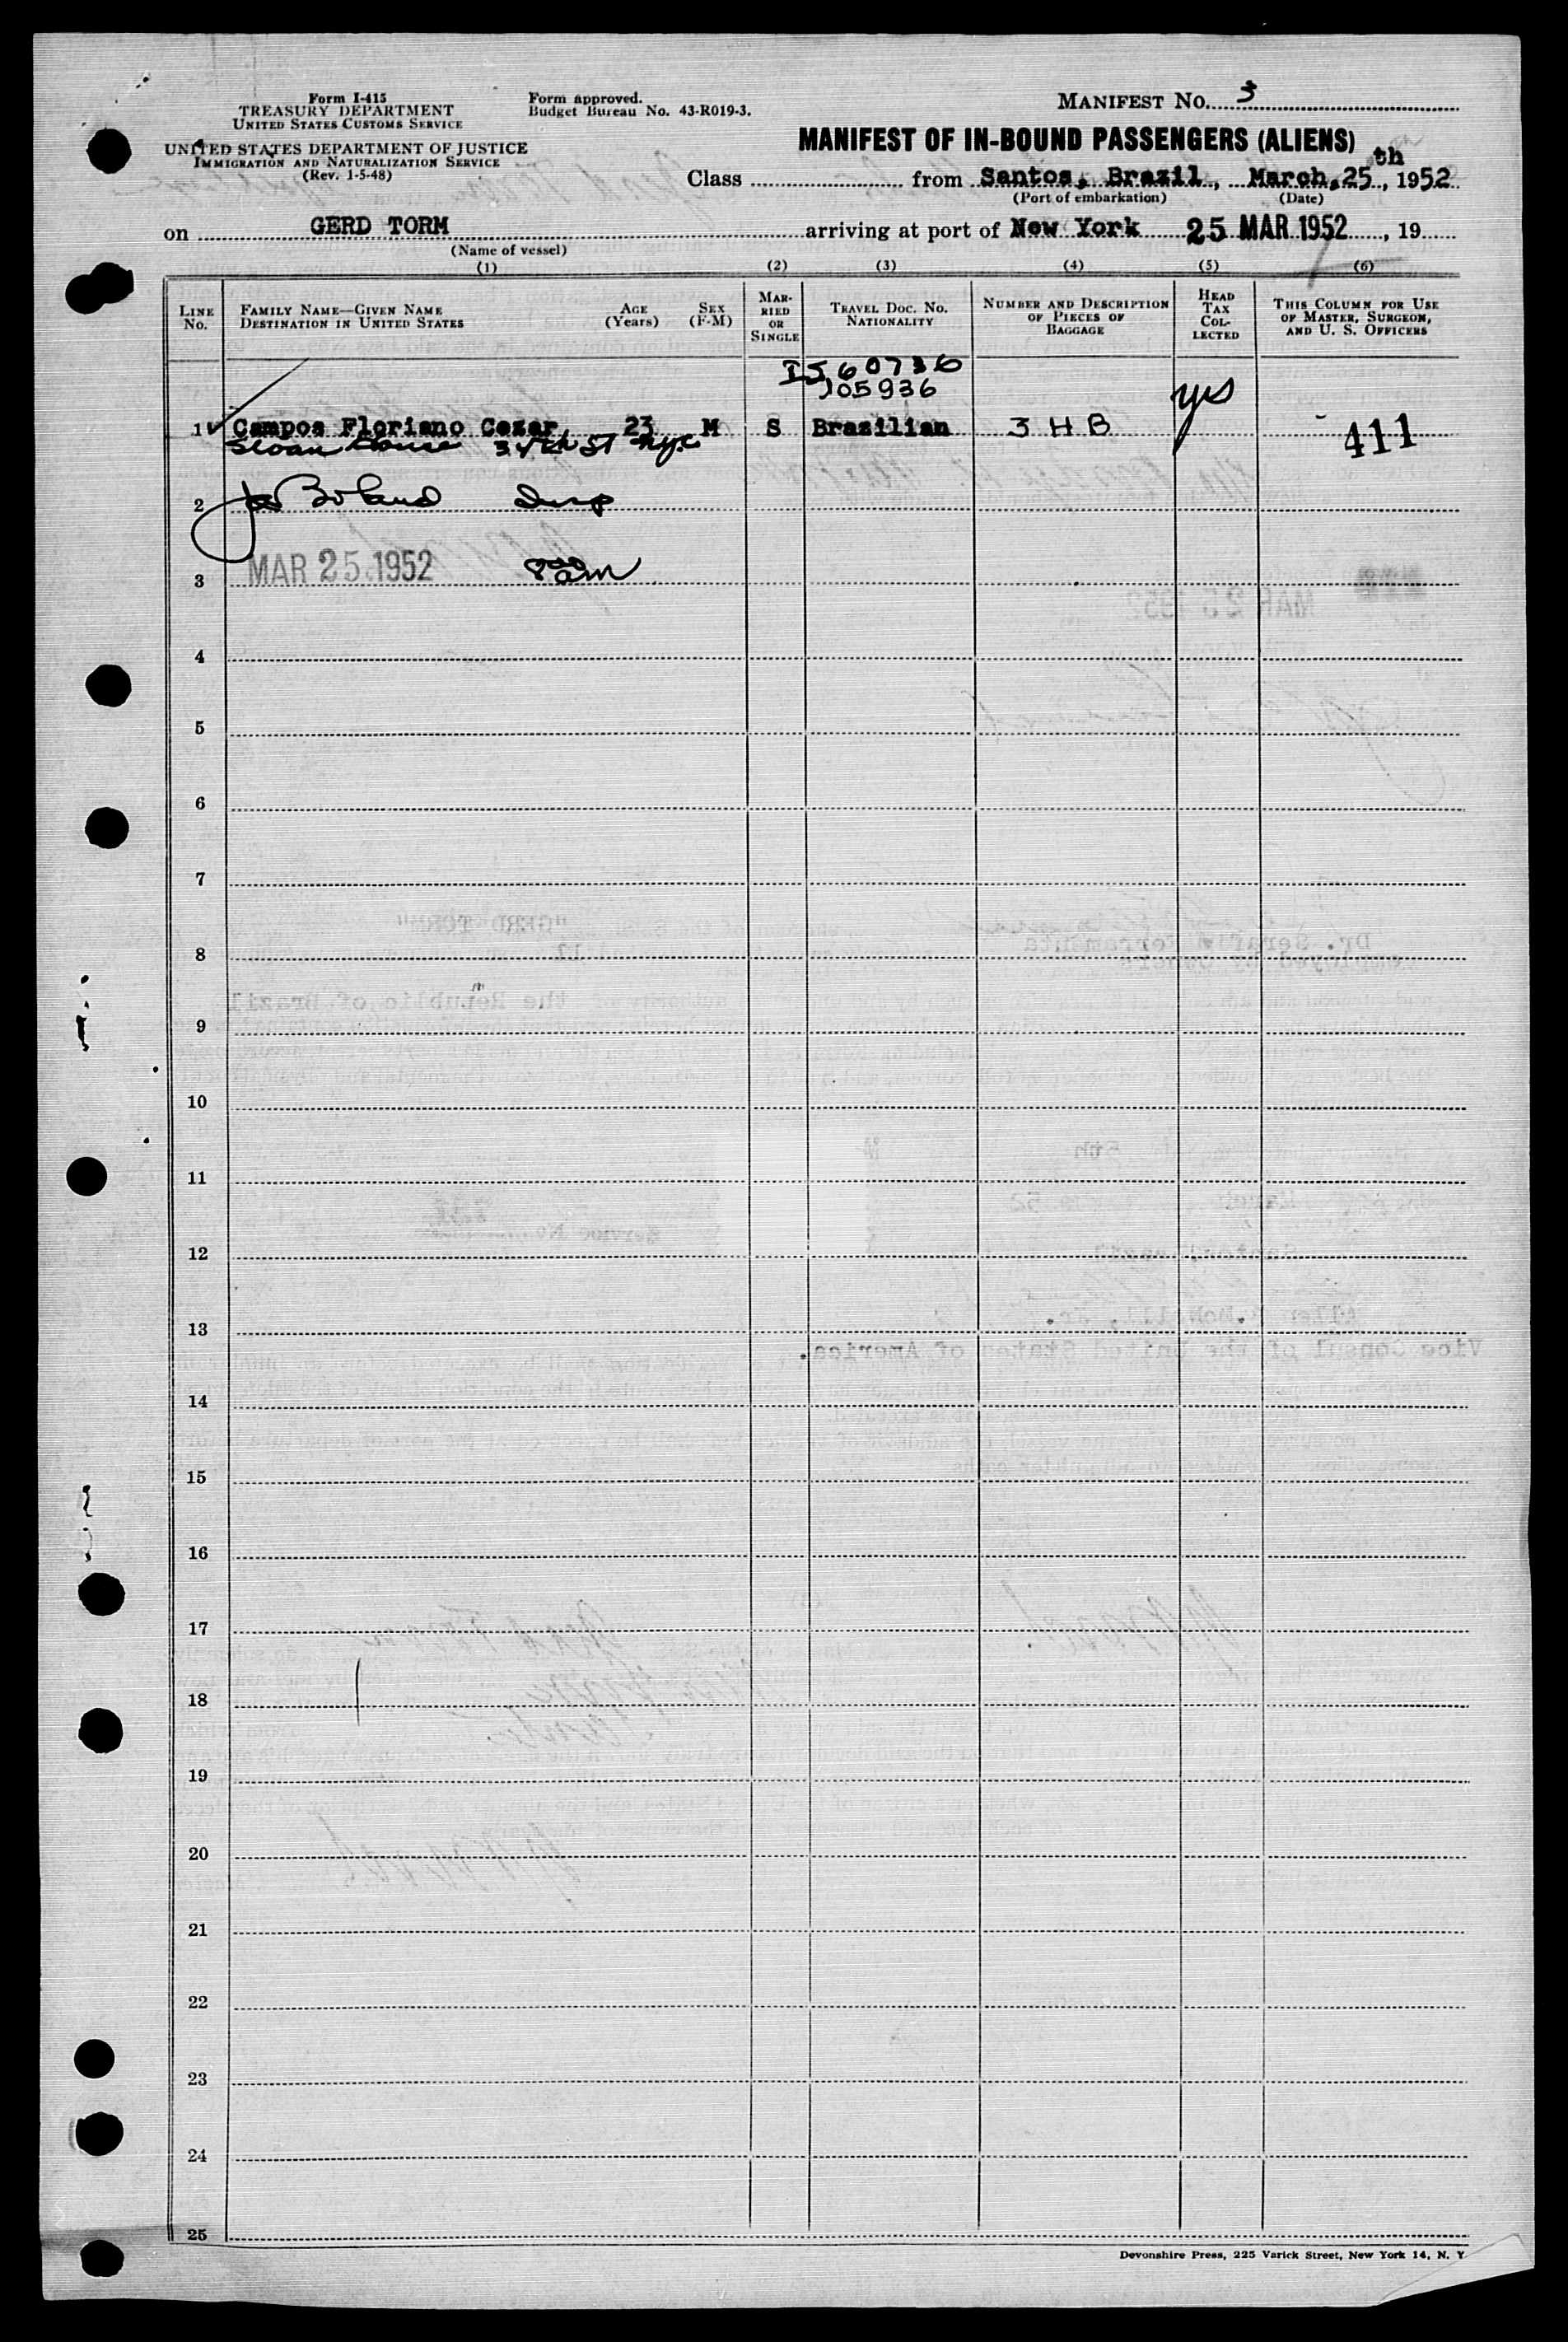 Form I-415
TREASURY DEPARTMENT
UNITED STATES CUSTOMS SERVICE
UNITED STATES DEPARTMENT OF JUSTICE
IMMIGRATION AND NATURALIZATION SERVICE
(Rev. 1-5-48)
Form approved.
Budget Bureau No. 43-R019-3.
MANIFEST NO. 3
MANIFEST OF IN-BOUND PASSENGERS (ALIENS)
Class from Santos, Brazil, March, 25th, 1952
(Port of embarkation) (Date)
on GERD TORM arriving at port of New York 25 MAR 1952, 19
(Name of vessel)
(1) (2) (3) (4) (5) (6)
LINE No.
FAMILY NAME—GIVEN NAME
DESTINATION IN UNITED STATES
AGE (Years)
SEX (F-M)
MARRIED OR SINGLE
TRAVEL DOC. NO.
NATIONALITY
NUMBER AND DESCRIPTION OF PIECES OF BAGGAGE
HEAD TAX COLLECTED
THIS COLUMN FOR USE OF MASTER, SURGEON, AND U. S. OFFICERS
105936
1 Campos Floriano Cezar 23 M S Brazilian 3 H B yes 411
Sloan House 34th St NYC
2 Boland Insp
3 MAR 25 1952
4
5
6
7
8
9
10
11
12
13
14
15
16
17
18
19
20
21
22
23
24
25
Devonshire Press, 225 Varick Street, New York 14, N. Y.